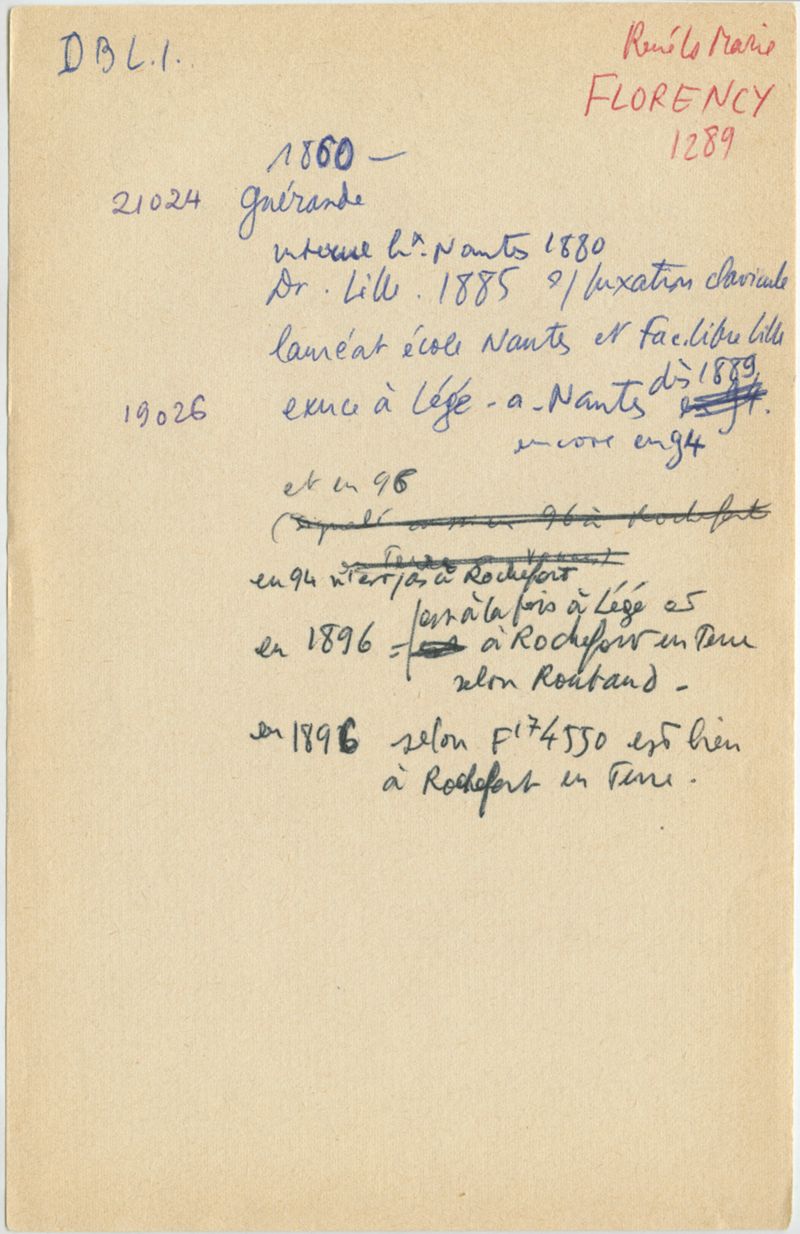 DBL.I.
René Ls Marie
FLORENCY
1289
1860 —
21024 Guérande
interne hx. Nantes 1880
Dr. Lille. 1885 s/ luxation clavicule
lauréat école Nantes et Fac. libre Lille
19026 exerce à Légé - a - Nantes dès 1889
encore en 94
et en 96
(signalé aussi en 96 à Rochefort
en Terre
en 94 n'est pas à Rochefort
en 1896 = est à la fois à Légé et
à Rochefort en Terre
selon Roubaud -
en 1896 selon F17 4550 est bien
à Rochefort en Terre.